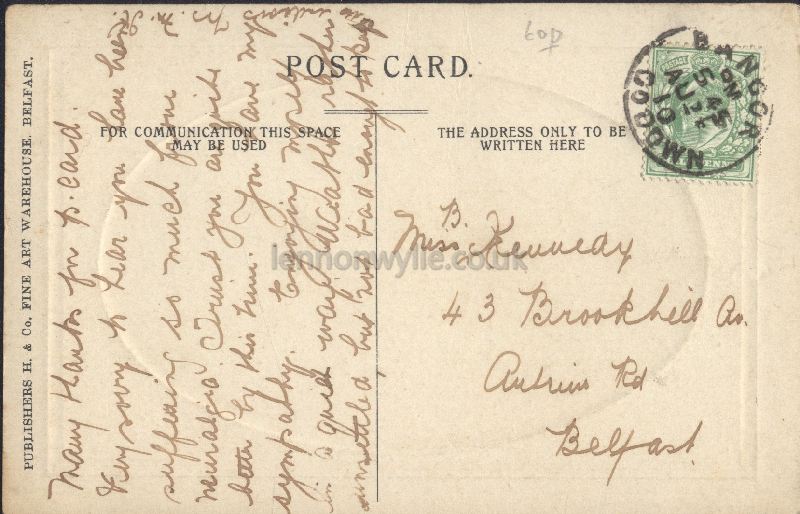 POST CARD.
FOR COMMUNICATION THIS SPACE
MAY BE USED
THE ADDRESS ONLY TO BE
WRITTEN HERE
PUBLISHERS H. & Co. FINE ART WAREHOUSE. BELFAST.
Many thanks for p. card.
Very sorry to hear you have been
suffering so much from
neuralgia Trust you are quite
better by this time. You have my
sympathy. Enjoying myself
in a quiet way Weather rather
unsettled, but not bad enough to keep
indoors
B.
Miss Kennedy
43 Brookhill Av.
Antrim Rd
Belfast
BANGOR
5 45 PM
AU 2
10
CO DOWN
POSTAGE
60p
lennonwylie.co.uk